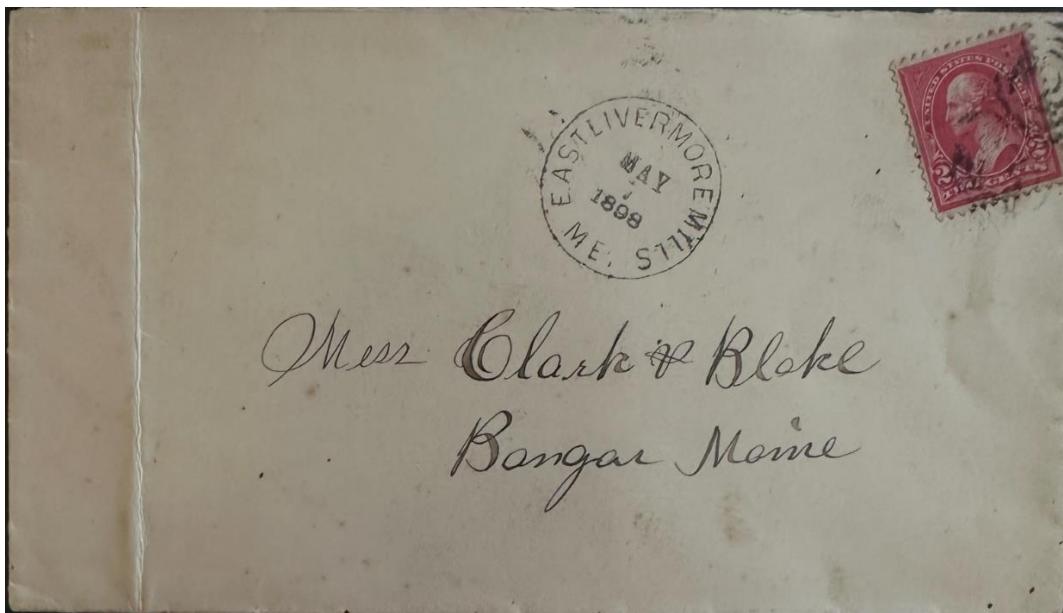 EAST LIVERMORE MILLS
MAY
1898
ME.
UNITED STATES POSTAGE
2
TWO CENTS
Mess Clark & Blake
Bangor Maine